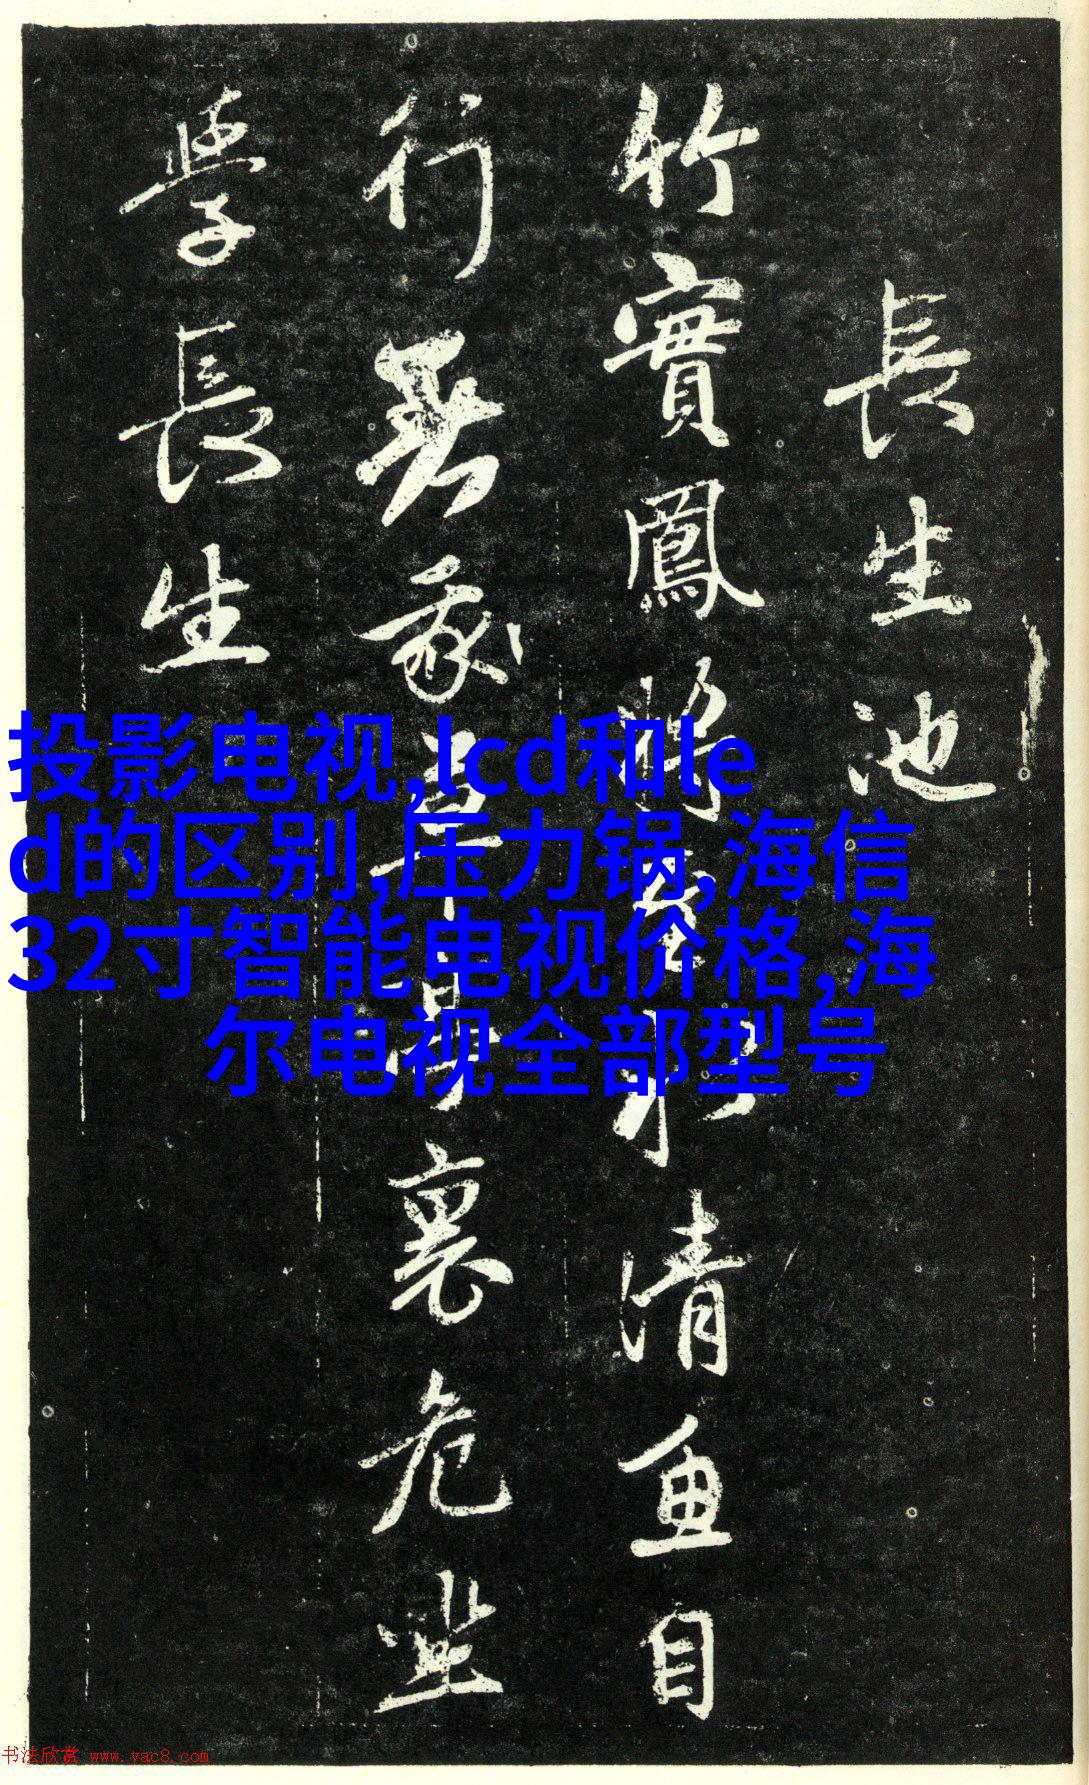 長生池
竹實鳳將至水清魚自
行家草亭裏危坐
學長生
投影电视,lcd和le
d的区别,压力锅,海信
32寸智能电视价格,海
尔电视全部型号
书法欣赏 www.yac8.com